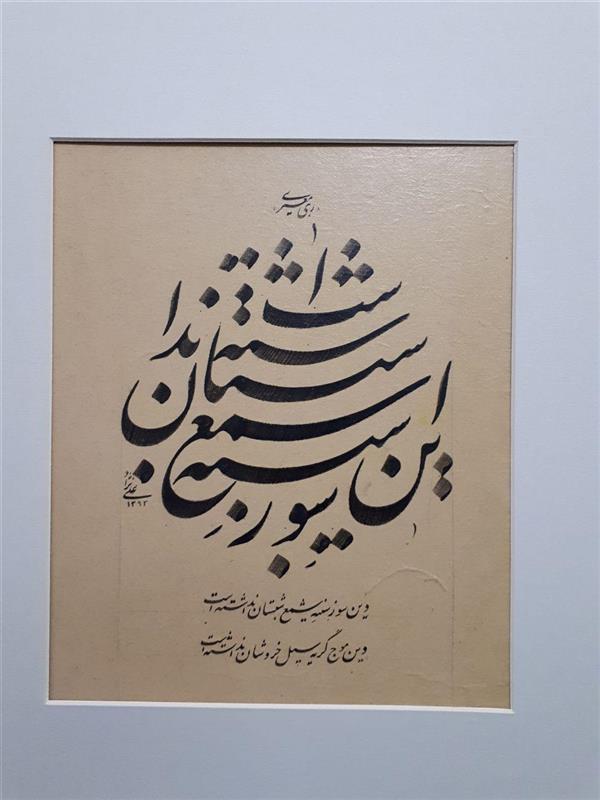 رهی معیری
این سوز سینه شمع شبستان نداشته است
وین سوز سینه شمع شبستان نداشته است
وین موج گریه سیل خروشان نداشته است